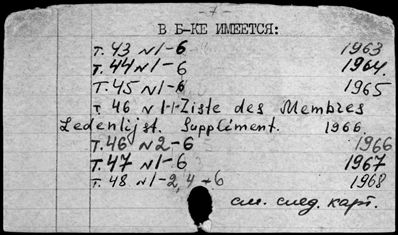 - 7 -
В Б-КЕ ИМЕЕТСЯ:
т. 43 N1-6 1963
т. 44 N1-6 1964.
т. 45 N1-6 1965
т. 46 N1-1-Ziste des Membres
Ledenlijst. Supplément. 1966.
т. 46 N2-6 1966
т. 47 N1-6 1967
т. 48 N1-2, 4-6 1968
см. след. карт.